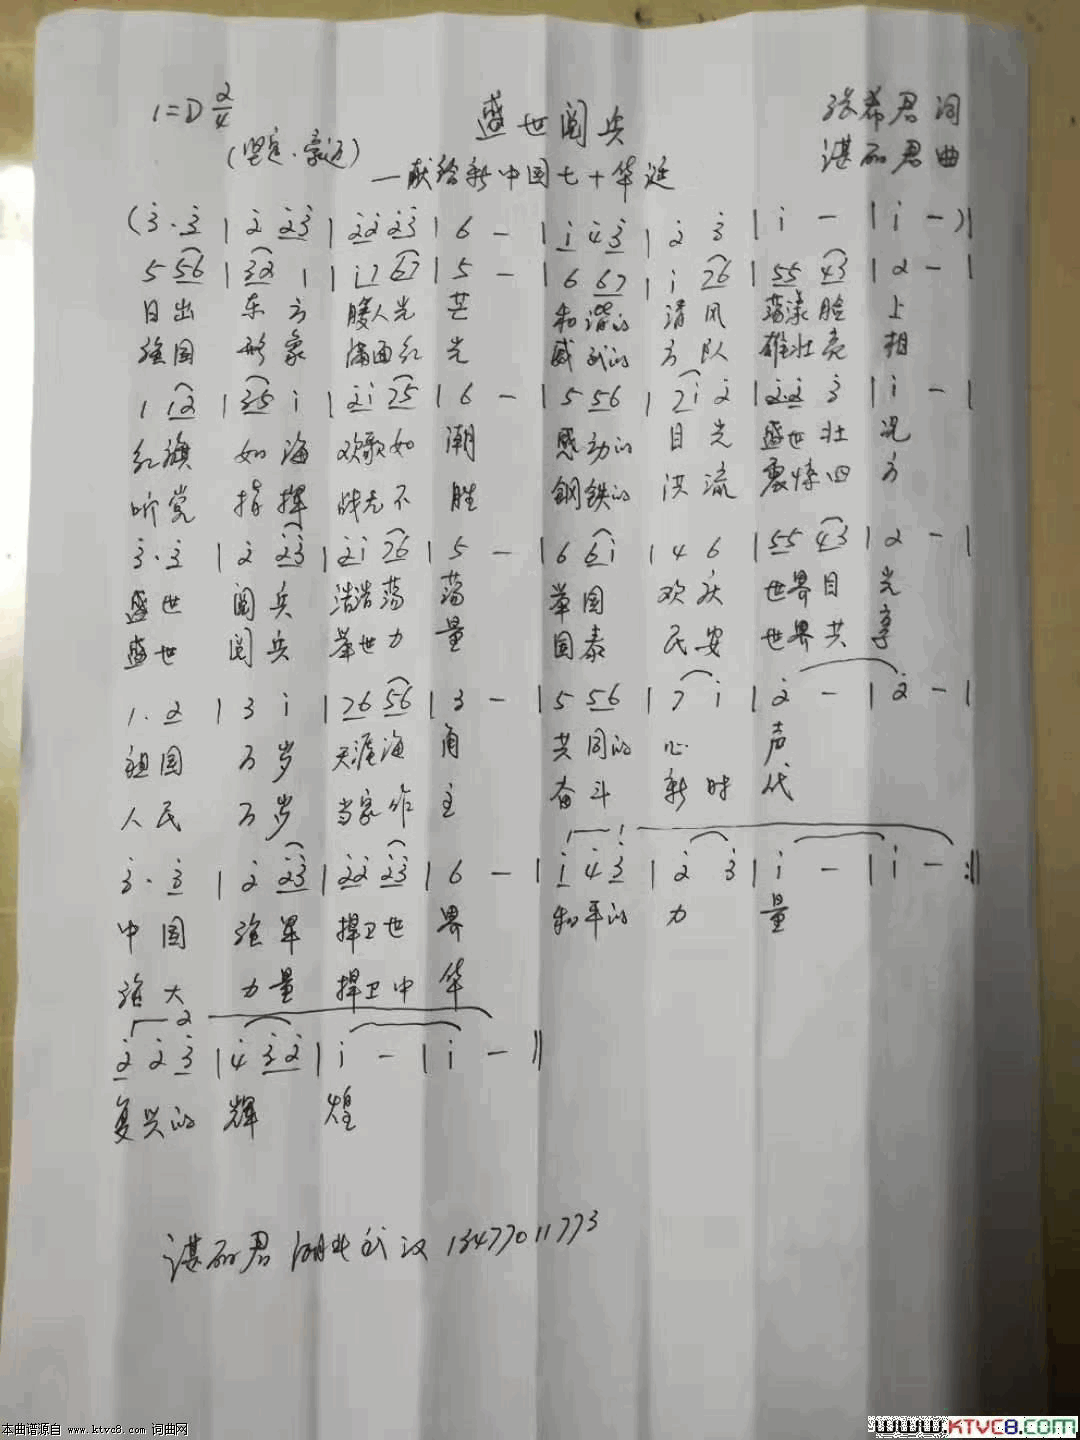 1=D 2/4
盛世阅兵
张希君词
(坚定、豪迈)
—献给新中国七十华诞
谌丽君曲
(3̇·3̇ | 2̇ 2̇3̇ | 2̇2̇ 2̇3̇ | 6 - | 1̇ 4̇ 3̇ | 2̇ 3̇ | 1̇ - | 1̇ -)|
5 56 | 32 1 | 1̇7 67 | 5 - | 6 67 | 1̇ 76 | 55 43 | 2 - |
日出 东方 腰人光芒 和谐的 清风 荡漾脸上
强国 形象 满面红光 威武的 方队 雄壮亮相
1 12 | 35 1̇ | 2̇1̇ 75 | 6 - | 5 56 | 71̇ 2̇ | 2̇2̇ 3̇ | 1̇ - |
红旗 如海 欢歌如潮 感动的 目光 盛世壮况
听党 指挥 战无不胜 钢铁的 洪流 震悚四方
3̇·3̇ | 2̇ 2̇3̇ | 2̇1̇ 76 | 5 - | 6 61̇ | 4 6 | 55 43 | 2 - |
盛世 阅兵 浩浩荡荡 举国 欢庆 世界目光
盛世 阅兵 举世力量 国泰 民安 世界共享
1·2 | 3 1̇ | 76 56 | 3 - | 5 56 | 7 1̇ | 2̇ - | 2̇ - |
祖国 万岁 天涯海角 共同的 心 声
人民 万岁 当家作主 奋斗 新时 代
1
3̇·3̇ | 2̇ 2̇3̇ | 2̇2̇ 2̇3̇ | 6 - | 1̇ 4̇ 3̇ | 2̇ 3̇ | 1̇ - | 1̇ - :||
中国 强军 捍卫世界 和平的 力 量
强大 力量 捍卫中华
2
2̇ 2̇ 3̇ | 4̇ 3̇2̇ | 1̇ - | 1̇ - ||
复兴的 辉 煌
谌丽君 湖北武汉 13477011773
本曲谱源自 www.ktvc8.com 词曲网
WWW.KTVC8.COM